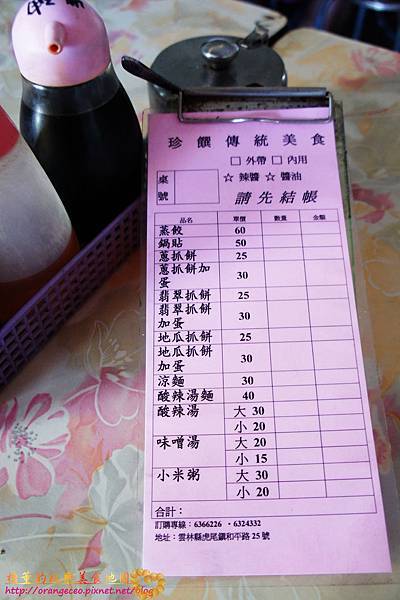 珍饌傳統美食
□外帶 □內用
桌號 ☆辣醬 ☆醬油
請先結帳
品名 單價 數量 金額
蒸餃 60
鍋貼 50
蔥抓餅 25
蔥抓餅加蛋 30
翡翠抓餅 25
翡翠抓餅加蛋 30
地瓜抓餅 25
地瓜抓餅加蛋 30
涼麵 30
酸辣湯麵 40
酸辣湯 大 30
小 20
味噌湯 大 20
小 15
小米粥 大 30
小 20
合計：
訂購專線：6366226．6324332
地址：雲林縣虎尾鎮和平路25號
http://orangeceo.pixnet.net/blog